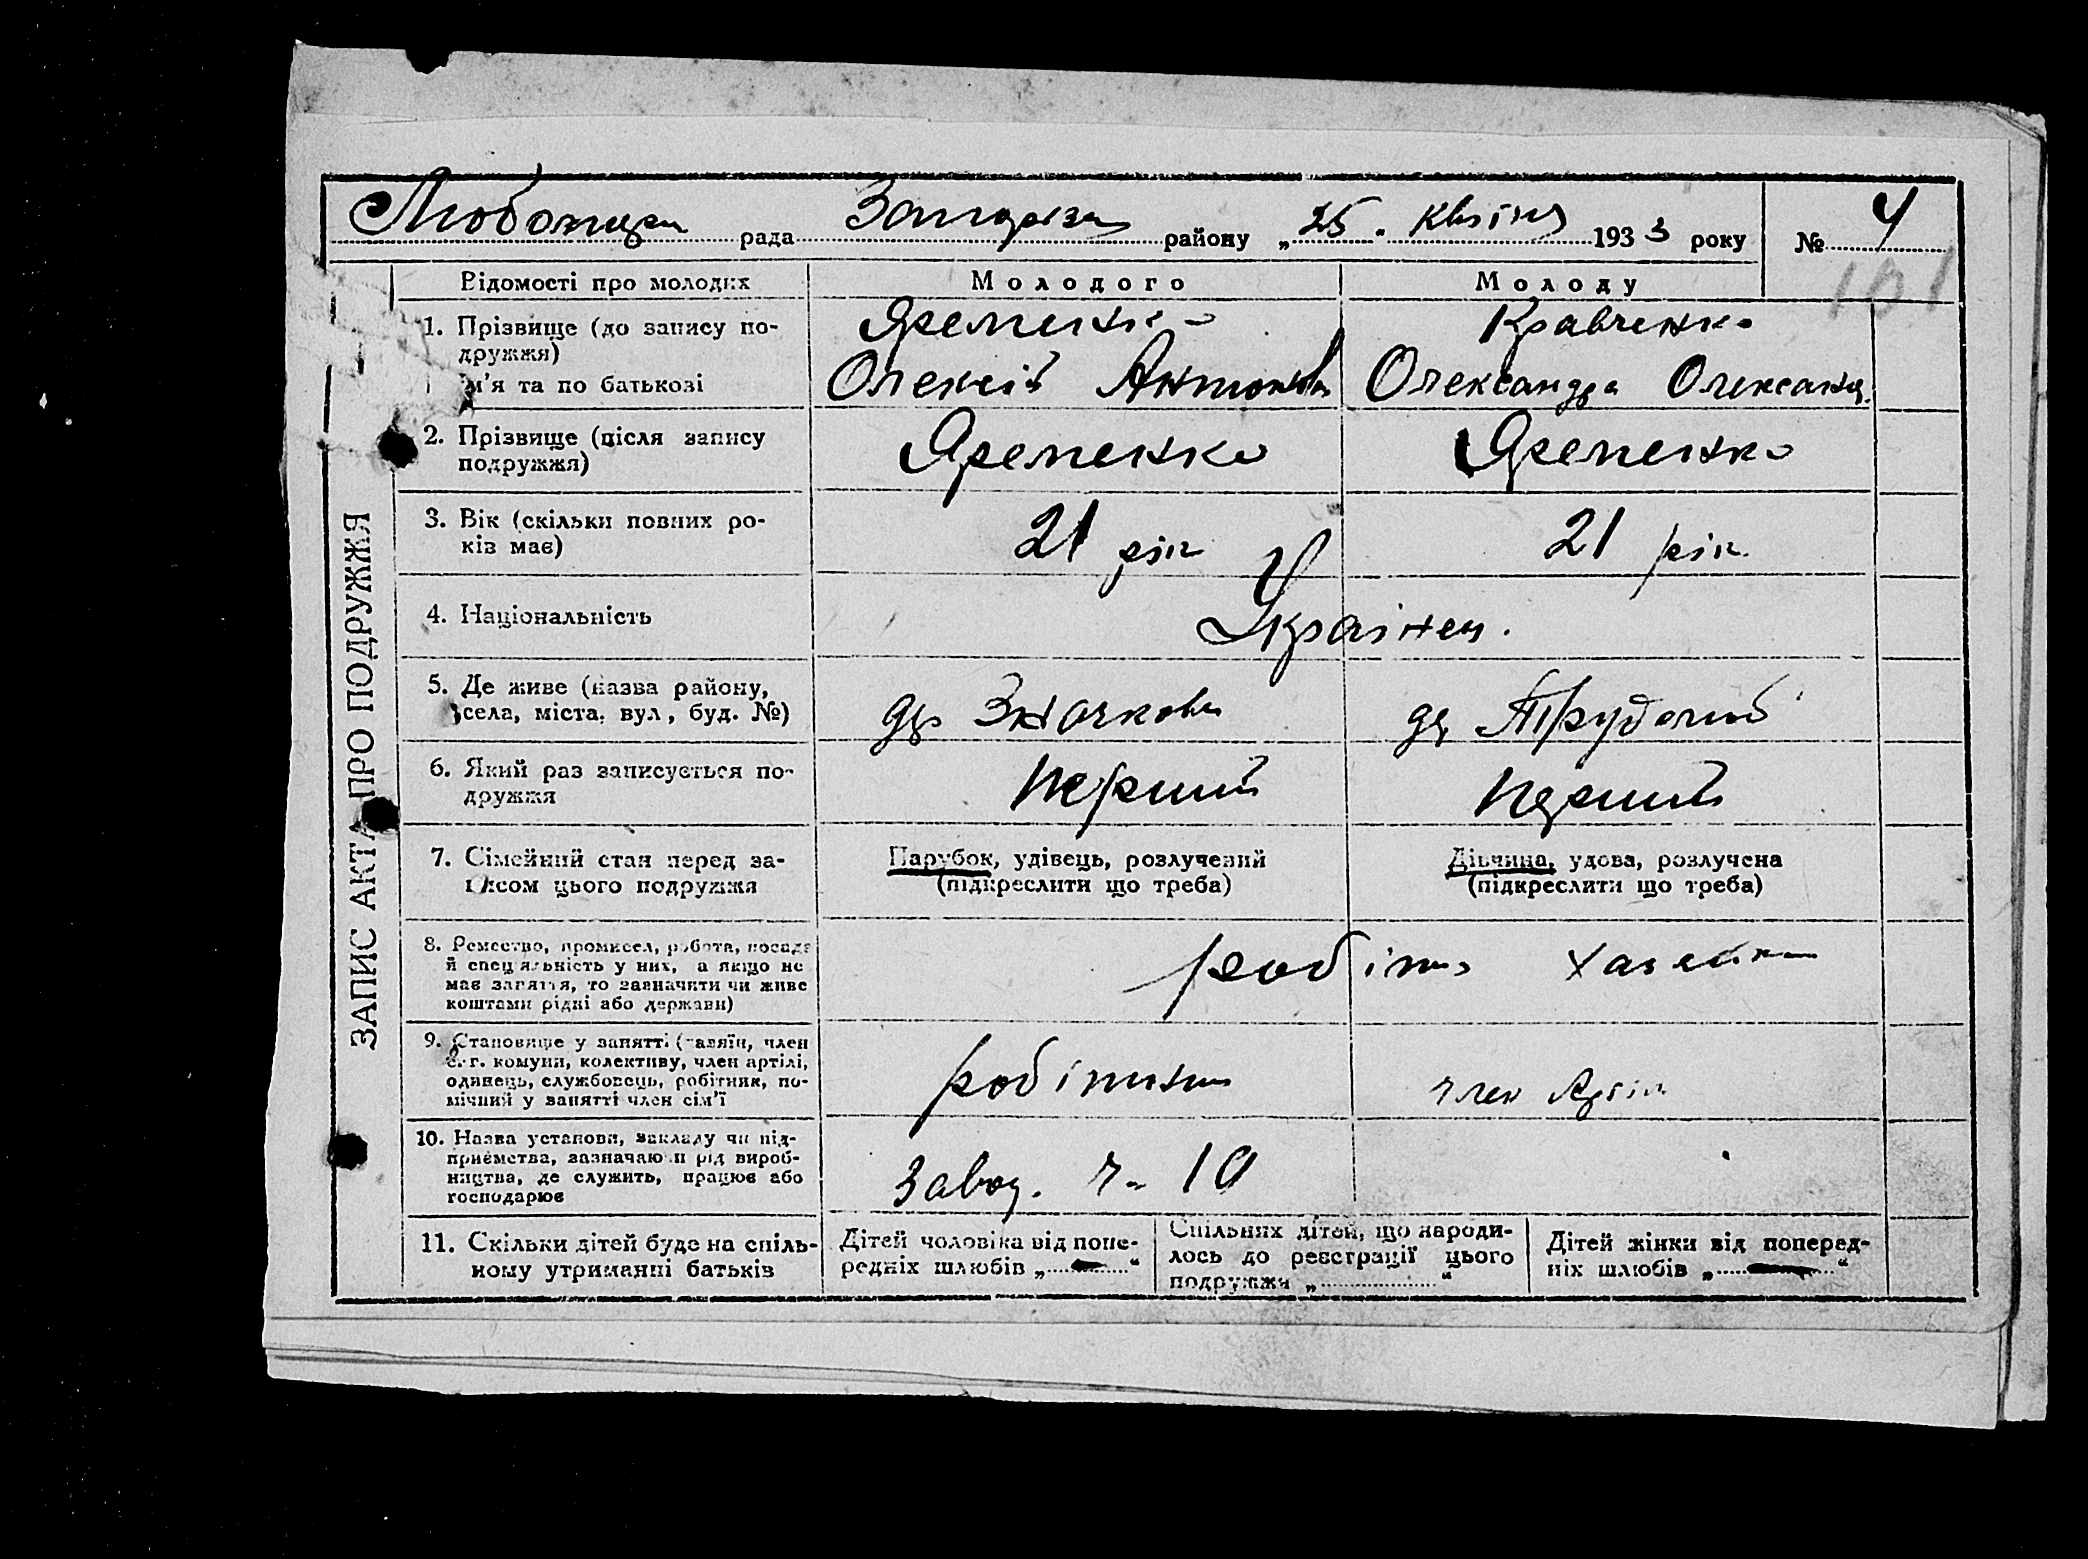 рада району „25" квітня 1933 року № 4
Відомості про молодих
Молодого
Молоду
1. Прізвище (до запису по-
дружжя)
м'я та по батькові
Яременко
Олексій Антонов
Кравченко
Олександра Олександ.
2. Прізвище (після запису
подружжя)
Яременко
Яременко
3. Вік (скільки повних ро-
ків має)
21 рік
21 рік
4. Національність
Українец.
5. Де живе (назва району,
села, міста, вул, буд. №)
6. Який раз записується по-
дружжя
Перший
Перший
7. Сімейний стан перед за-
писом цього подружжя
Парубок, удівець, розлучений
(підкреслити що треба)
Дівчина, удова, розлучена
(підкреслити що треба)
8. Ремество, промисел, робота, посада
й спеціяльність у них, а якщо не
має заняття, то зазначити чи живе
коштами рідні або держави)
9. Становище у занятті (хазяїн, член
с.-г. комуни, колективу, член артілі,
одинець, службовець, робітник, по-
мічний у занятті член сім'ї
член Артіл
10. Назва установи, закладу чи під-
приємства, зазначаючи рід вироб-
ництва, де служить, працює або
господарює
Завод. ч- 10
11. Скільки дітей буде на спіль-
ному утриманні батьків
Дітей чоловіка від попе-
редніх шлюбів „ — "
Спільних дітей, що народи-
лось до реєстрації цього
подружжя „ "
Дітей жінки від поперед-
ніх шлюбів „ — "
ЗАПИС АКТА ПРО ПОДРУЖЖЯ